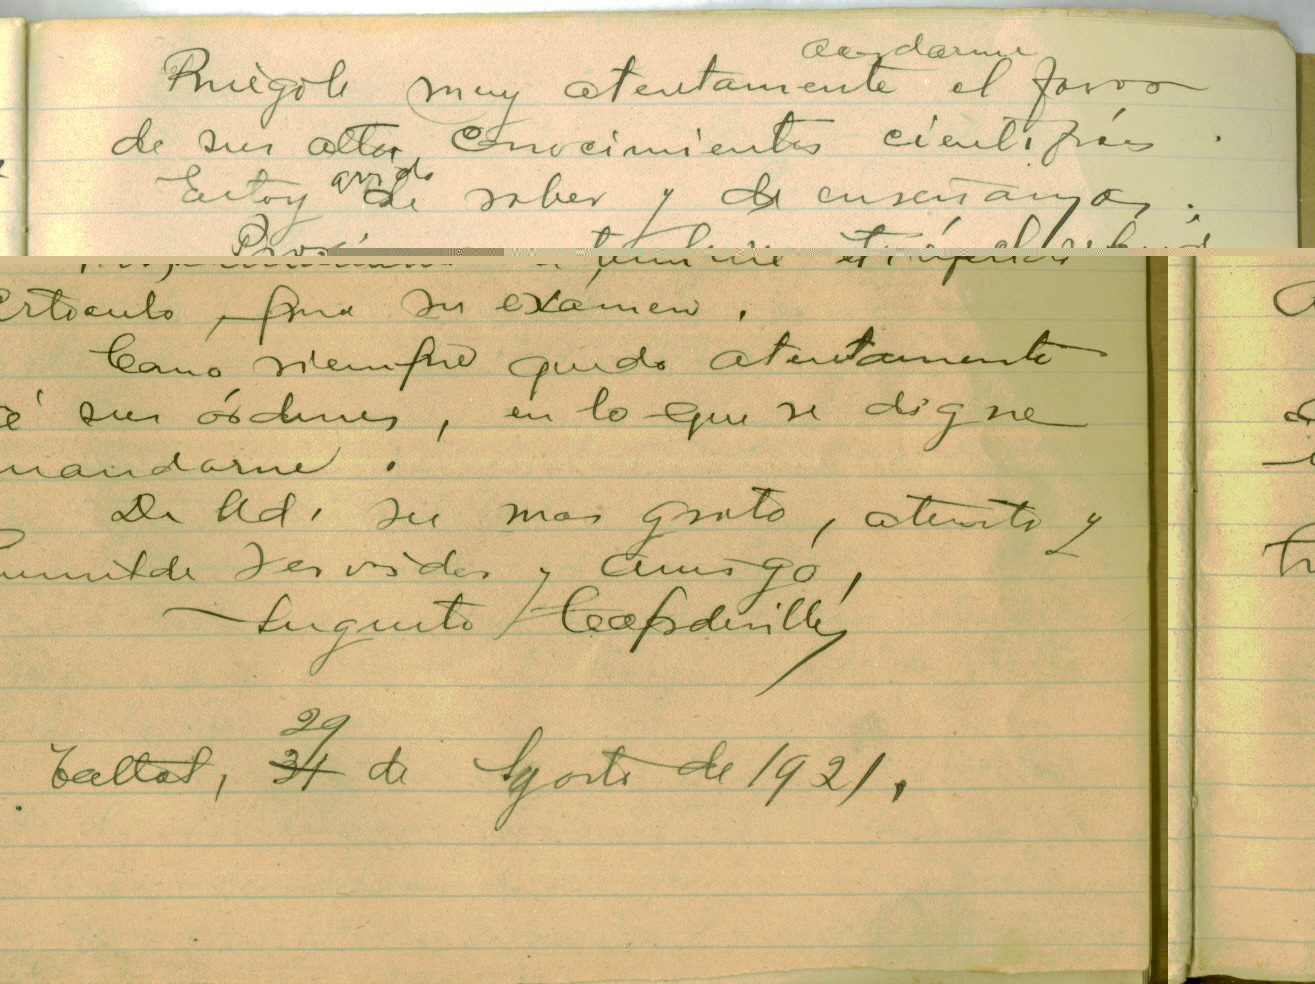 acordarme
Ruégole muy atentamente el favor
de sus altos Conocimientos científicos.
avido
Estoy de saber y de enseñanzas.
artículo, para su exámen.
Como siempre quedo atentamente
sus órdenes, en lo que se digne
mandarme.
De Ud. su mas grato, atento y
humilde servidor y amigo,
Augusto Capdeville
29
Taltal, 31 de Agosto de 1921.